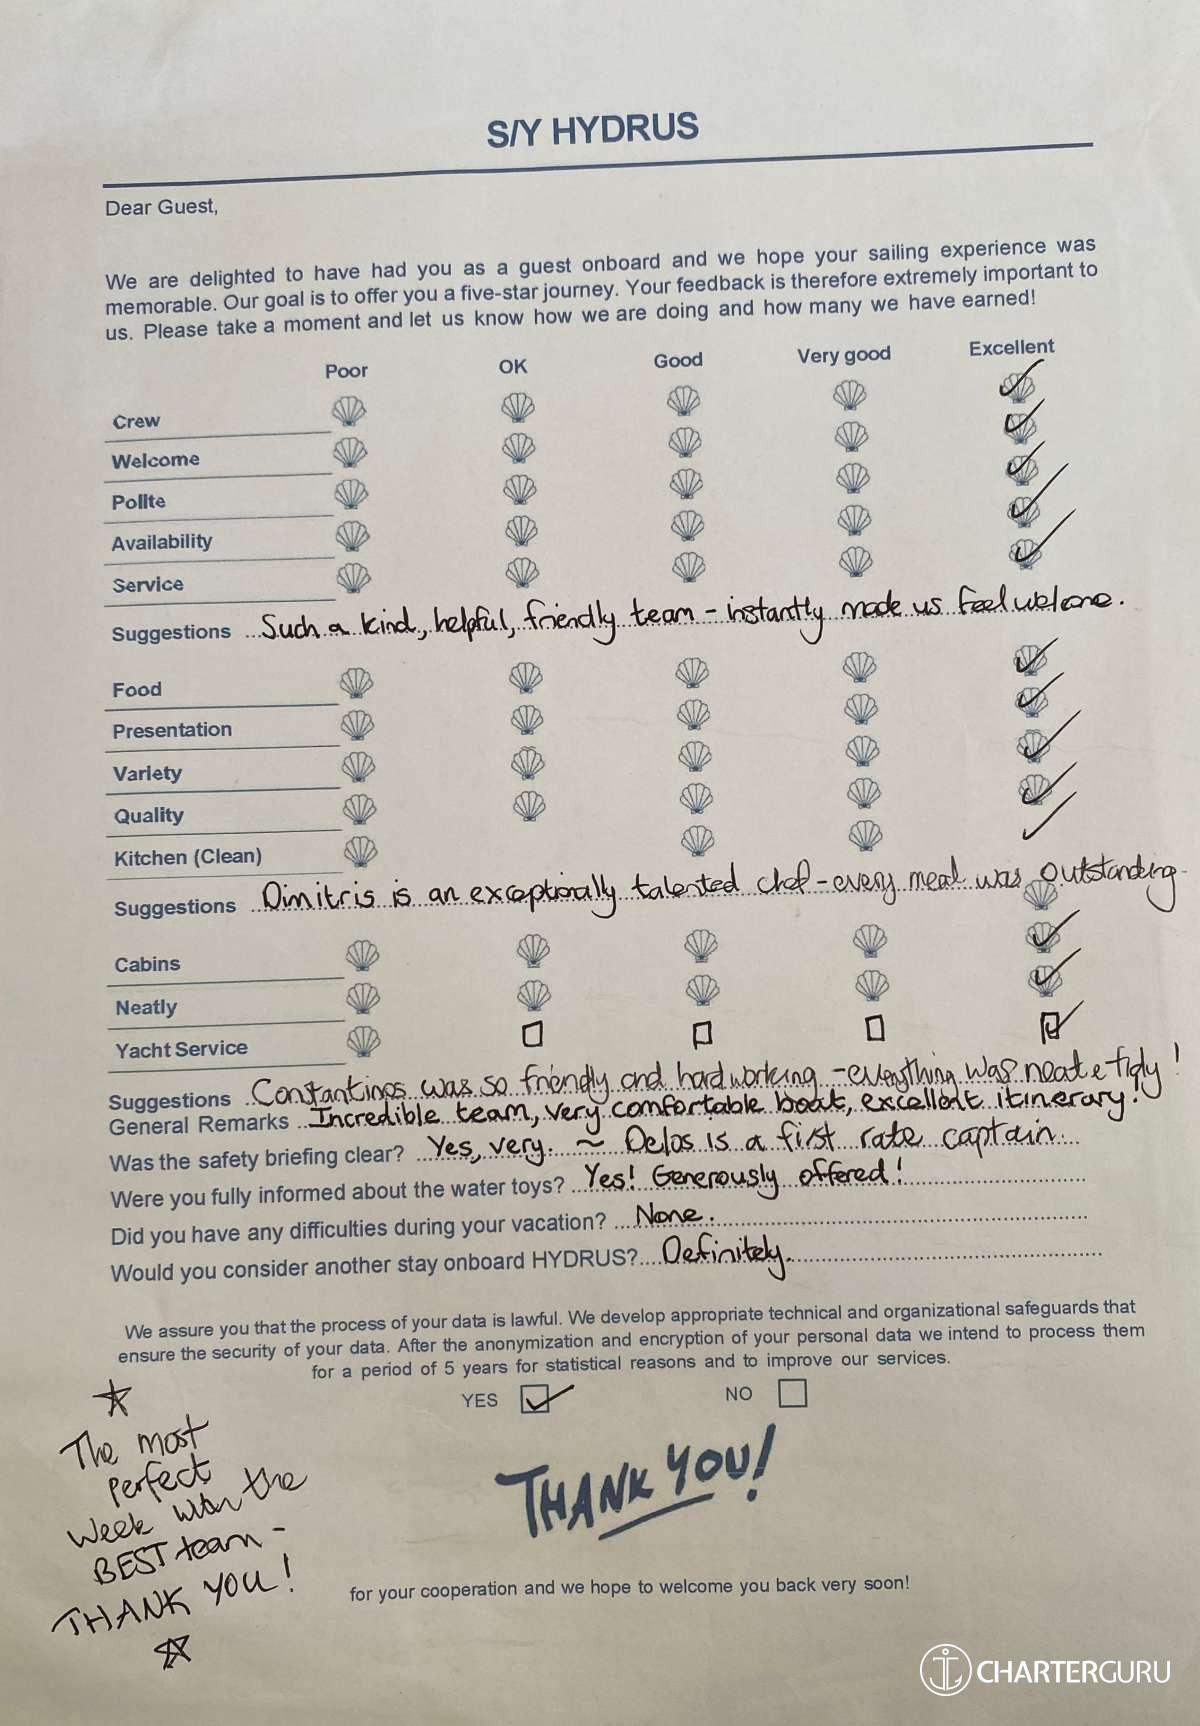 S/Y HYDRUS
Dear Guest,
We are delighted to have had you as a guest onboard and we hope your sailing experience was
memorable. Our goal is to offer you a five-star journey. Your feedback is therefore extremely important to
us. Please take a moment and let us know how we are doing and how many we have earned!
Poor OK Good Very good Excellent
Crew
Welcome
Polite
Availability
Service
Suggestions Such a kind, helpful, friendly team - instantly made us feel welcome.
Food
Presentation
Variety
Quality
Kitchen (Clean)
Suggestions Dimitris is an exceptionally talented chef - every meal was outstanding.
Cabins
Neatly
Yacht Service
Suggestions Constantinos was so friendly and hardworking - everything was neat & tidy!
General Remarks Incredible team, very comfortable boat, excellent itinerary!
Was the safety briefing clear? Yes, very. ~ Delos is a first rate captain.
Were you fully informed about the water toys? Yes! Generously offered!
Did you have any difficulties during your vacation? None.
Would you consider another stay onboard HYDRUS? Definitely.
We assure you that the process of your data is lawful. We develop appropriate technical and organizational safeguards that
ensure the security of your data. After the anonymization and encryption of your personal data we intend to process them
for a period of 5 years for statistical reasons and to improve our services.
YES NO
The most
perfect
week with the
BEST team -
THANK YOU!
THANK YOU!
for your cooperation and we hope to welcome you back very soon!
CHARTERGURU